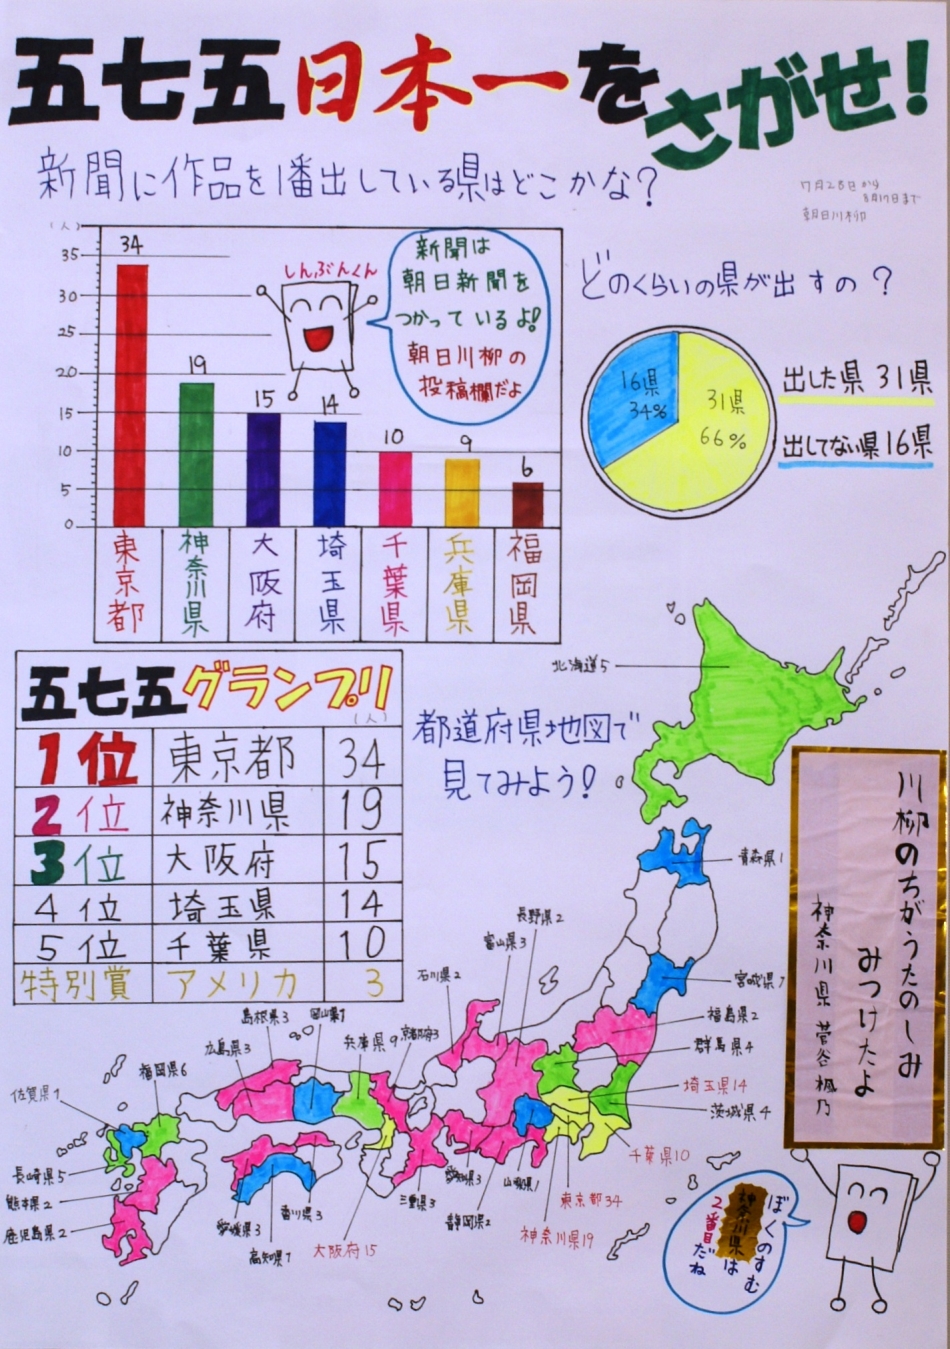 五七五日本一をさがせ!
新聞に作品を1番出している県はどこかな?
7月28日から
8月17日まで
朝日川柳
(人)
35
30
25
20
15
10
5
0
34
19
15
14
10
9
6
東京都
神奈川県
大阪府
埼玉県
千葉県
兵庫県
福岡県
しんぶんくん
新聞は
朝日新聞を
つかっているよ!
朝日川柳の
投稿欄だよ
どのくらいの県が出すの?
16県
34%
31県
66%
出した県 31県
出してない県16県
五七五グランプリ
(人)
1位 東京都 34
2位 神奈川県 19
3位 大阪府 15
4位 埼玉県 14
5位 千葉県 10
特別賞 アメリカ 3
都道府県地図で
見てみよう!
北海道5
青森県1
宮城県1
福島県2
群馬県4
埼玉県14
茨城県4
千葉県10
東京都34
神奈川県19
長野県2
富山県3
石川県2
京都府3
兵庫県9
岡山県1
島根県3
広島県3
福岡県6
佐賀県1
長崎県5
熊本県2
鹿児島県2
愛媛県3
高知県1
香川県3
大阪府15
三重県3
愛知県3
静岡県2
山梨県1
川柳のちがうたのしみ
みつけたよ
神奈川県 菅谷楓乃
ぼくのすむ
神奈川県は
2番目だね